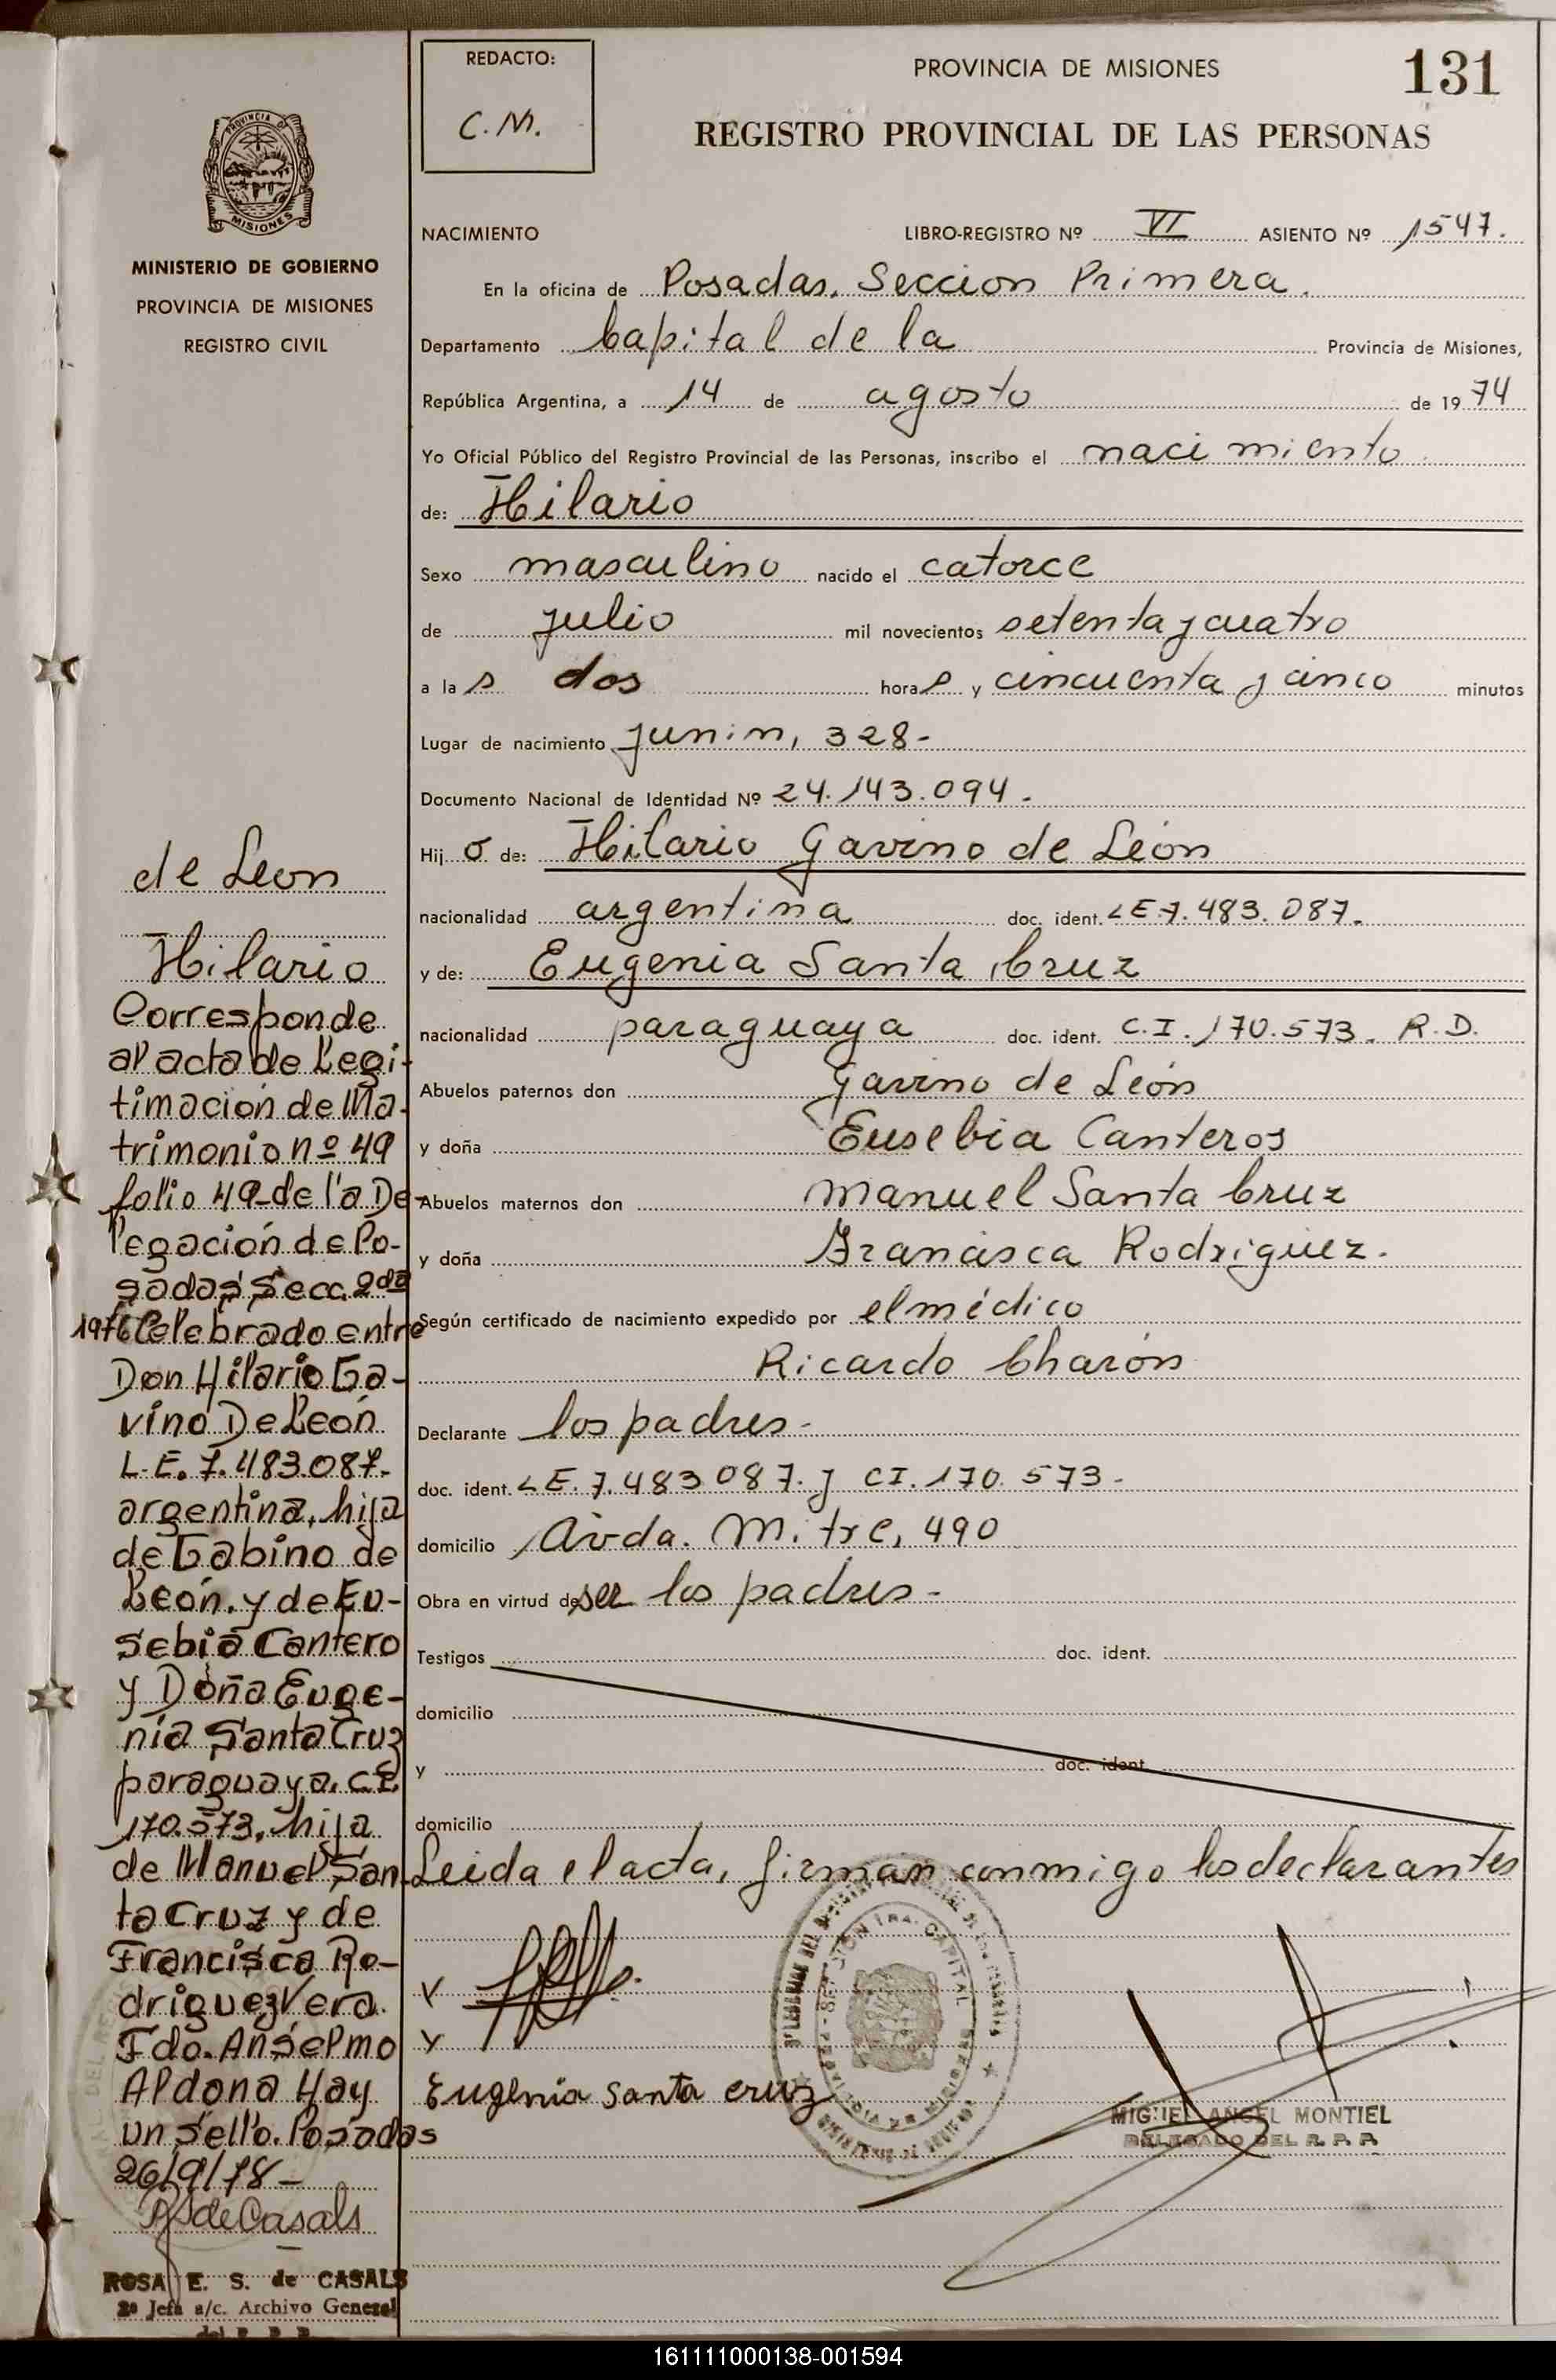 REDACTO:
C.M.
PROVINCIA DE MISIONES
131
REGISTRO PROVINCIAL DE LAS PERSONAS
PROVINCIA DE
MISIONES
MINISTERIO DE GOBIERNO
PROVINCIA DE MISIONES
REGISTRO CIVIL
NACIMIENTO LIBRO-REGISTRO Nº VI ASIENTO Nº 1547.
En la oficina de Posadas. Seccion Primera.
Departamento Capital de la Provincia de Misiones,
República Argentina, a 14 de agosto de 1974
Yo Oficial Público del Registro Provincial de las Personas, inscribo el nacimiento
de: Hilario
Sexo masculino nacido el catorce
de julio mil novecientos setenta y cuatro
a las dos horas y cincuenta y cinco minutos
Lugar de nacimiento Junin, 328-
Documento Nacional de Identidad Nº 24.143.094.
Hijo de: Hilario Gavino de León
nacionalidad argentina doc. ident. LE.7.483.087.
y de: Eugenia Santa Cruz
nacionalidad paraguaya doc. ident. C.I. 170.573. R.D.
Abuelos paternos don Gavino de León
y doña Eusebia Canteros
Abuelos maternos don Manuel Santa Cruz
y doña Francisca Rodriguez.
Según certificado de nacimiento expedido por el médico
Ricardo Charón
Declarante los padres-
doc. ident. LE.7.483 087. y CI.170.573-
domicilio Avda. Mitre, 490
Obra en virtud de ser los padres-
Testigos doc. ident.
domicilio
y doc. ident.
domicilio
Leida el acta, firman conmigo los declarantes
Y
Y
Eugenia Santa cruz
MIGUEL ANGEL MONTIEL
DELEGADO DEL R. P. P.
de Leon
Hilario
Corresponde
al acta de Legi-
timación de Ma-
trimonio nº 49
folio 49-de la De-
legación de Po-
sadas Secc. 2da
1976 Celebrado entre
Don Hilario Ga-
vino De León
L.E. 7.483.087-
argentina, hija
de Gabino de
León. y de Eu-
sebia Cantero
y Doña Euge-
nia Santa Cruz
paraguaya. C.I.
170.573, hija
de Manuel San-
ta Cruz y de
Francisca Ro-
driguez Vera.
Fdo. Anselmo
Aldana Hay
un sello. Posadas
26/9/78-
R S de Casals
ROSA E. S. de CASALS
2ª Jefa a/c. Archivo General
del R. P. P.
161111000138-001594